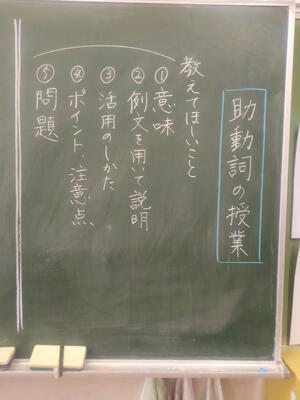 助動詞の授業
教えてほしいこと
①意味
②例文を用いて説明
③活用のしかた
④ポイント、注意点
⑤問題